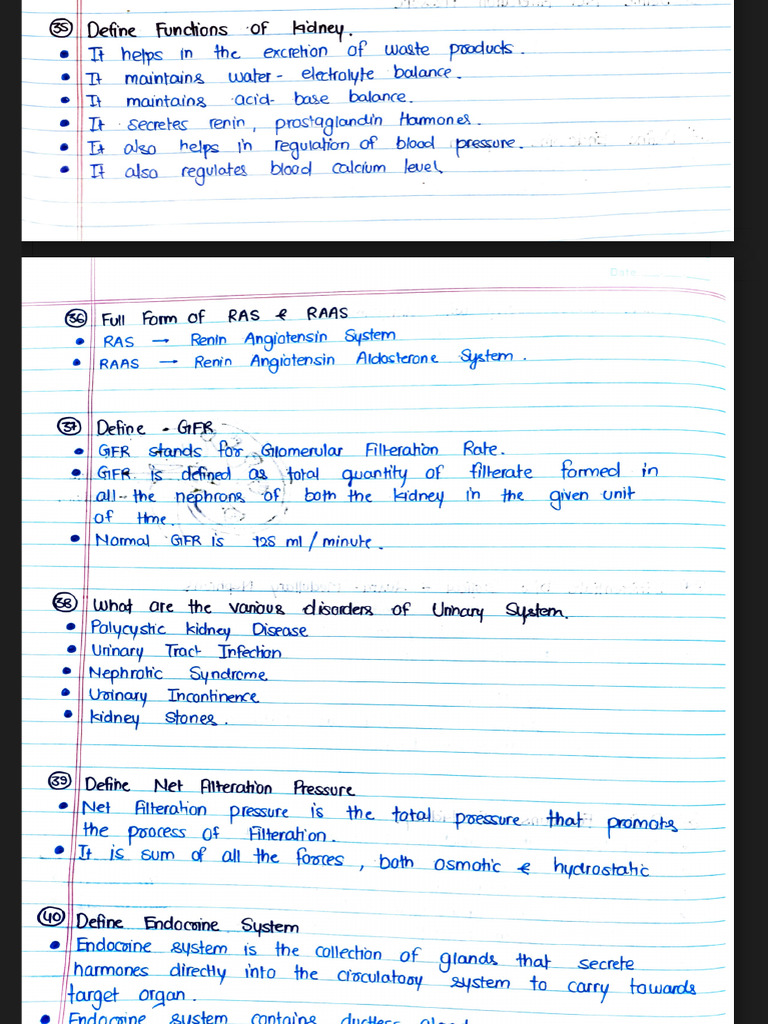 35 Define Functions of kidney.
• It helps in the excretion of waste products.
• It maintains water - electrolyte balance.
• It maintains acid - base balance.
• It secretes renin, prostaglandin Harmones.
• It also helps in regulation of blood pressure.
• It also regulates blood calcium level.
Date
36 Full Form of RAS & RAAS
• RAS → Renin Angiotensin System
• RAAS → Renin Angiotensin Aldosterone System.
37 Define - GFR
• GFR stands for Glomerular Filteration Rate.
• GFR is defined as total quantity of filterate formed in
all the nephrons of both the kidney in the given unit
of time.
• Normal GFR is 125 ml / minute.
38 What are the various disorders of Urinary System.
• Polycystic kidney Disease
• Urinary Tract Infection
• Nephrotic Syndrome
• Urinary Incontinence
• kidney stones.
39 Define Net filteration Pressure
• Net filteration pressure is the total pressure that promots
the process of Filteration.
• It is sum of all the forces, both osmotic & hydrostatic
40 Define Endocrine System
• Endocrine system is the collection of glands that secrete
harmones directly into the circulatory system to carry towards
target organ.
• Endocrine system contains ductless